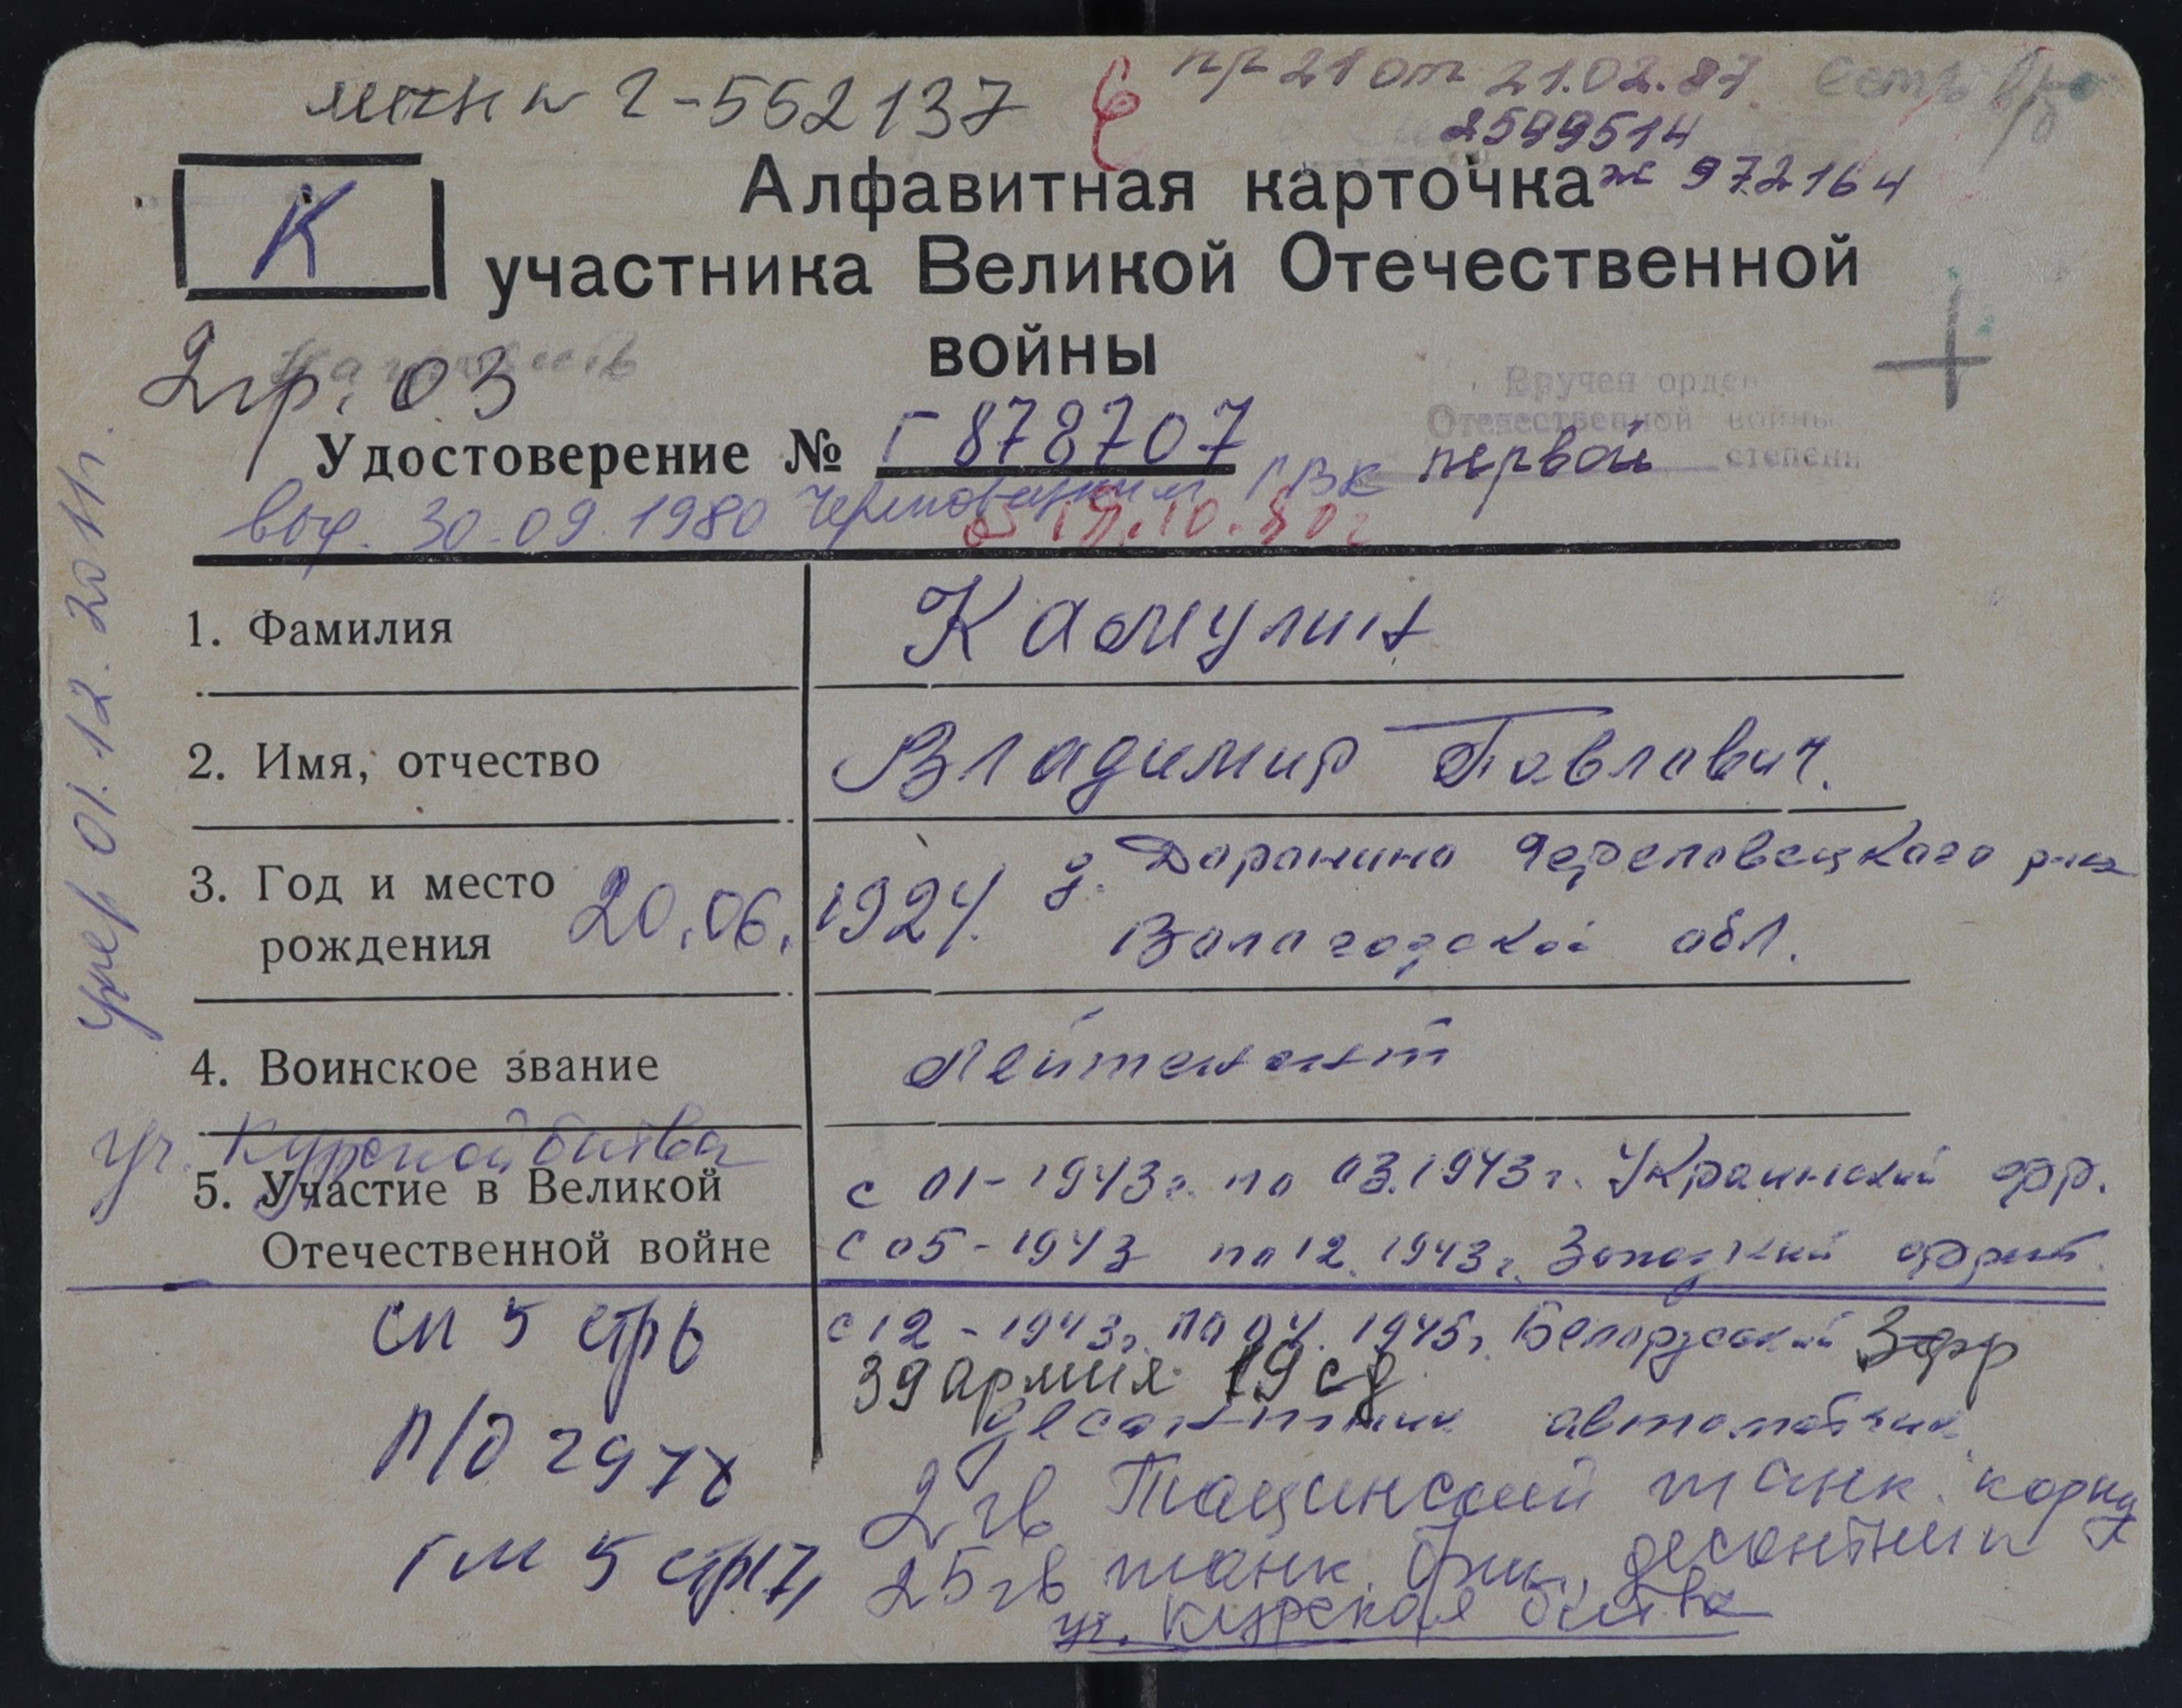 г-562137
пр 21 от 21.02.87
2599514
Алфавитная карточка № 972164
К
участника Великой Отечественной
войны
2 гр. 03
Вручен орден
Отечественной войны
первой степени
Удостоверение № Г 878707
выд. 30.09.1980 Череповецким ГВК
19.10.80г
1. Фамилия Камулин
2. Имя, отчество Владимир Павлович.
3. Год и место рождения 20.06.1924. д. Доронино Череповецкого р-на
Вологодской обл.
4. Воинское звание Лейтенант
уч. Курской битвы
5. Участие в Великой Отечественной войне с 01-1943г. по 03.1943г. Украинский фр.
с 05-1943 по 12.1943г. Западный фронт.
с 12-1943г. по 04.1945г. Белорусский 3 фр
39 армия 19 сд
десантник автоматчик
2 гв Тацинский танк. корпус
25 гв танк. бриг. десантник
уч. Курская битва
сп 5 стр 6
п/о 2978
гм 5 стр 17
умер 01.12.2011г.